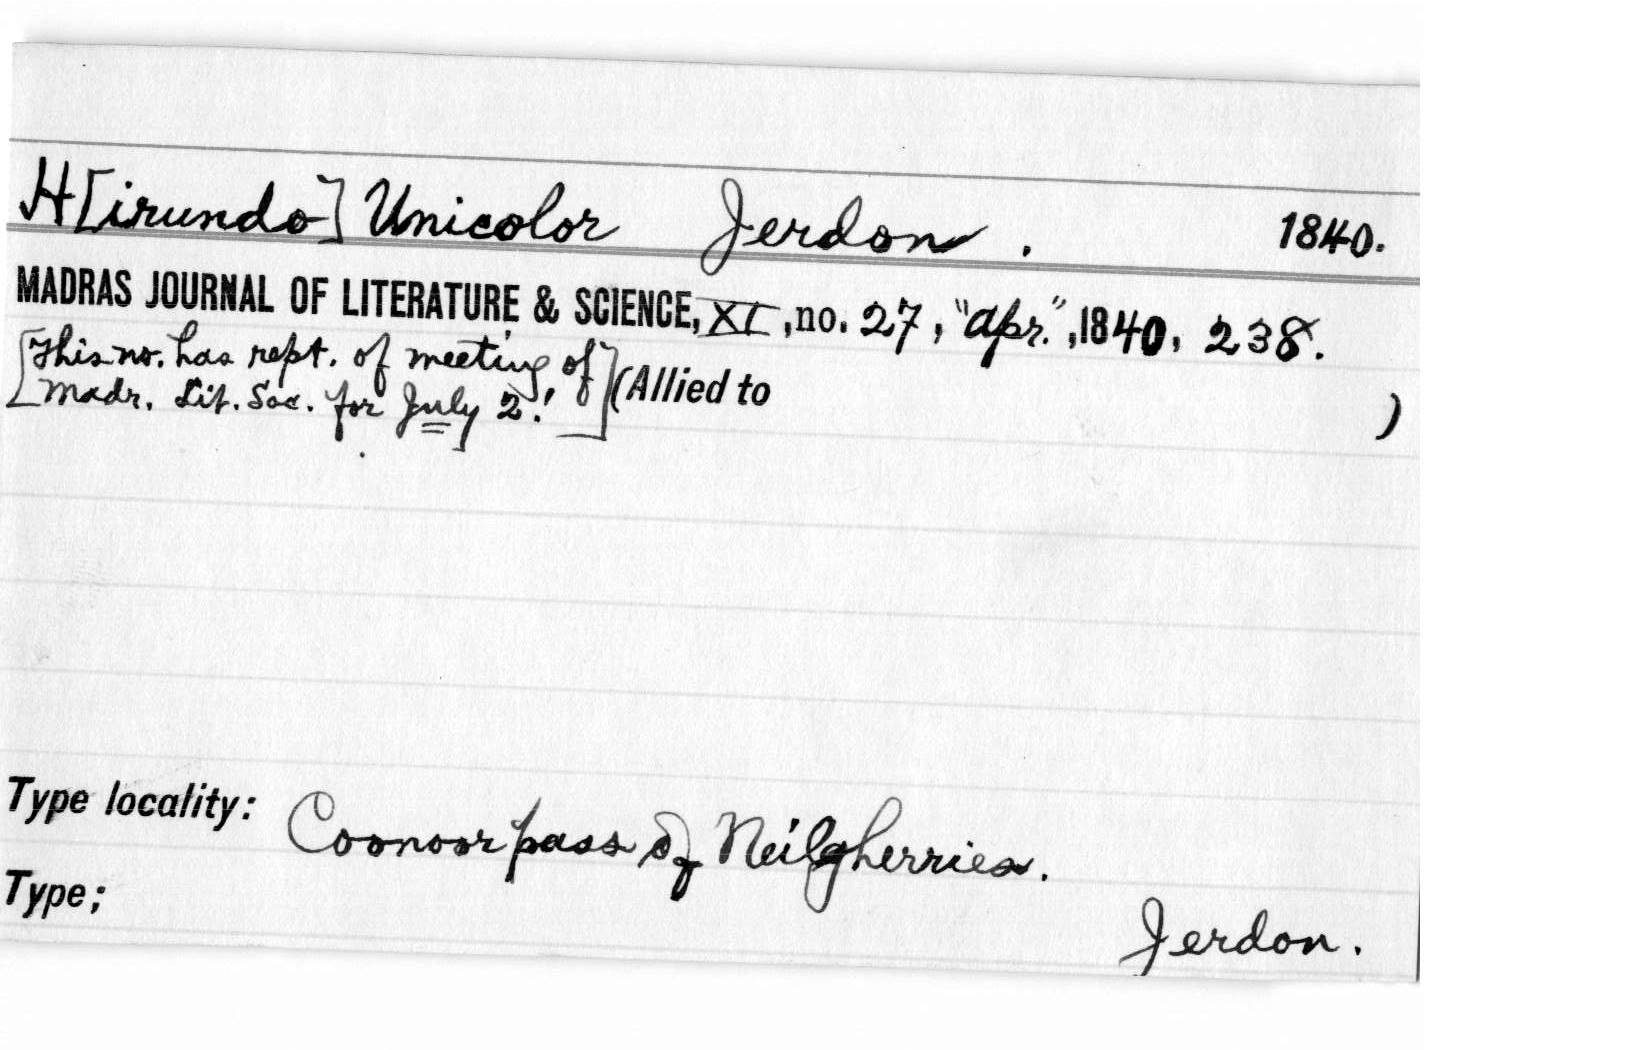 H[irundo] Unicolor Jerdon. 1840.
MADRAS JOURNAL OF LITERATURE & SCIENCE, XI, no. 27, "Apr.", 1840, 238.
[This no. has rept. of meeting of
Madr. Lit. Soc. for July 2!] (Allied to )
Type locality: Coonoor pass of Neilgherries.
Type;
Jerdon.